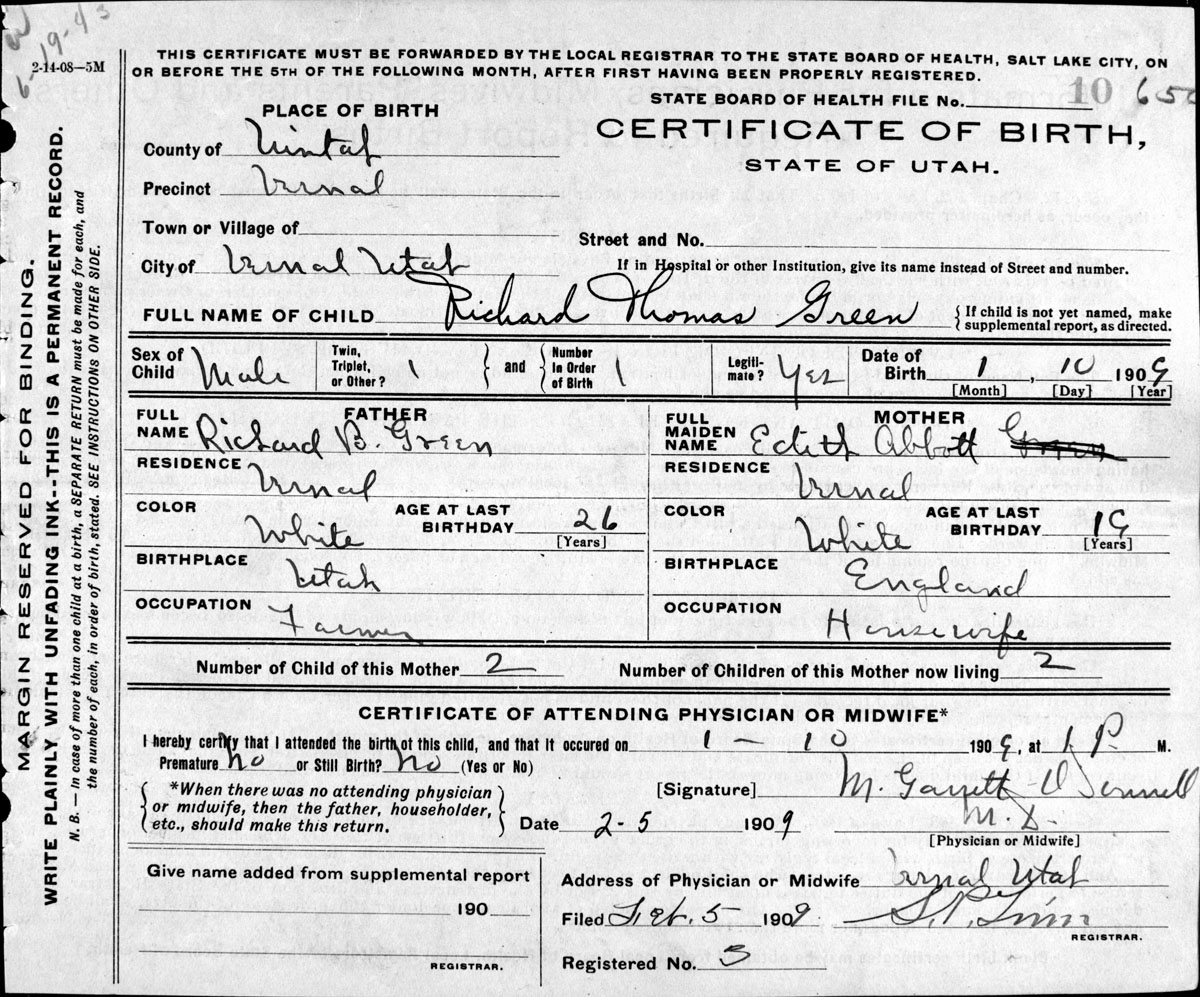 19-43
2-14-08—5M
THIS CERTIFICATE MUST BE FORWARDED BY THE LOCAL REGISTRAR TO THE STATE BOARD OF HEALTH, SALT LAKE CITY, ON
OR BEFORE THE 5TH OF THE FOLLOWING MONTH, AFTER FIRST HAVING BEEN PROPERLY REGISTERED.
STATE BOARD OF HEALTH FILE No. 10 650
PLACE OF BIRTH
CERTIFICATE OF BIRTH,
STATE OF UTAH.
County of Uintah
Precinct Vernal
Town or Village of
Street and No.
City of Vernal Utah
If in Hospital or other Institution, give its name instead of Street and number.
FULL NAME OF CHILD Richard Thomas Green { If child is not yet named, make
supplemental report, as directed.
Sex of Child Male Twin, Triplet, or Other? 1 } and { Number In Order of Birth 1 Legiti-mate? Yes Date of Birth 1, 10 1909
[Month] [Day] [Year]
FULL NAME FATHER Richard B. Green
RESIDENCE Vernal
COLOR White AGE AT LAST BIRTHDAY 26
[Years]
BIRTHPLACE Utah
OCCUPATION Farmer
FULL MAIDEN NAME MOTHER Edith Abbott Green
RESIDENCE Vernal
COLOR White AGE AT LAST BIRTHDAY 19
[Years]
BIRTHPLACE England
OCCUPATION Housewife
Number of Child of this Mother 2 Number of Children of this Mother now living 2
CERTIFICATE OF ATTENDING PHYSICIAN OR MIDWIFE*
I hereby certify that I attended the birth of this child, and that it occured on 1 — 10 1909, at 1 P. M.
Premature No or Still Birth? No (Yes or No)
*When there was no attending physician
or midwife, then the father, householder,
etc., should make this return.
[Signature] M. Garrett O'Donnell
M. D.
Date 2-5 1909
[Physician or Midwife]
Give name added from supplemental report
190
REGISTRAR.
Address of Physician or Midwife Vernal Utah
Filed Feb. 5 1909
REGISTRAR.
Registered No. 3
MARGIN RESERVED FOR BINDING.
WRITE PLAINLY WITH UNFADING INK--THIS IS A PERMANENT RECORD.
N. B. — In case of more than one child at a birth, a SEPARATE RETURN must be made for each, and
the number of each, in order of birth, stated. SEE INSTRUCTIONS ON OTHER SIDE.